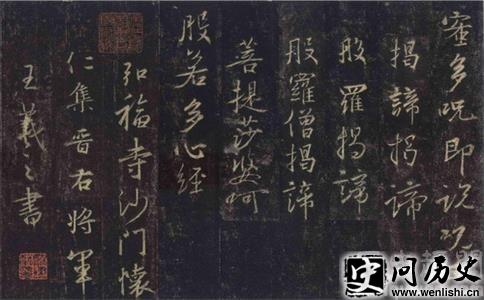 蜜多呪即說呪
揭諦揭諦
般羅揭諦
般羅僧揭諦
菩提莎婆呵
般若多心經
弘福寺沙門懷
仁集晉右將軍
王羲之書
史问历史
www.wenlishi.cn